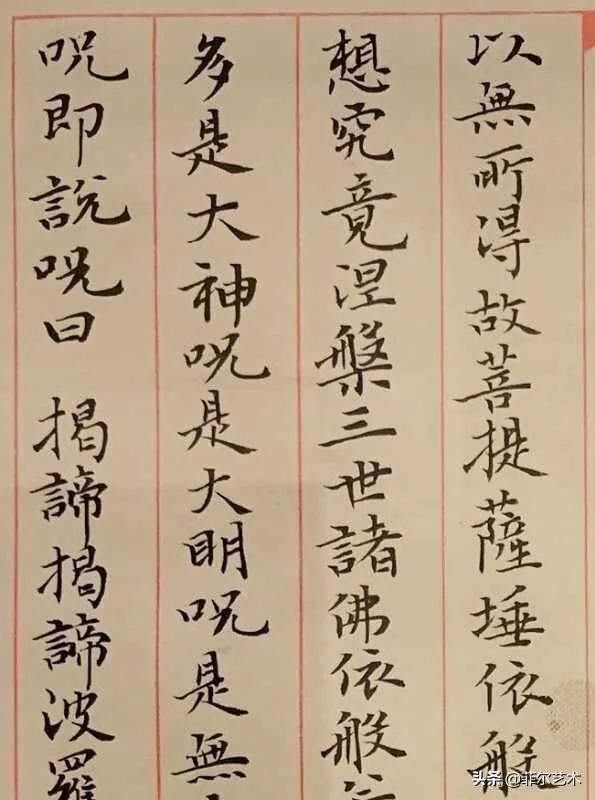 以無所得故菩提薩埵依般
想究竟涅槃三世諸佛依般
多是大神呪是大明呪是無
呪即說呪曰 揭諦揭諦波羅
头条 @菲尔艺术